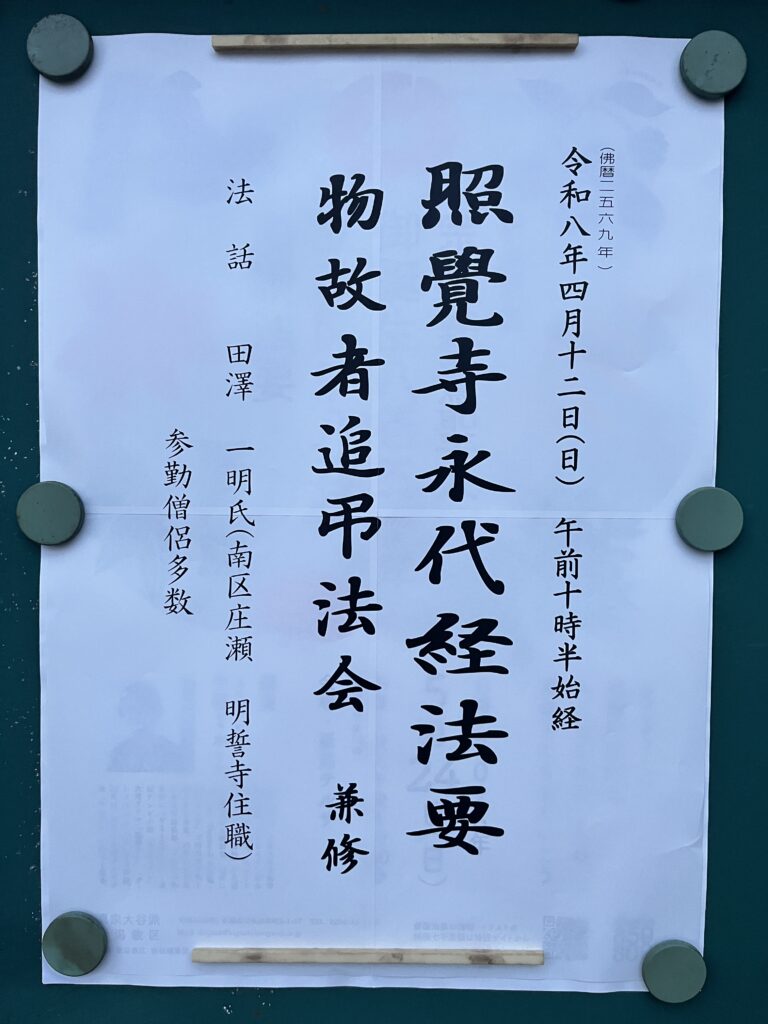 (佛暦二五六九年)
令和八年四月十二日(日) 午前十時半始経
照覺寺永代経法要
物故者追弔法会 兼修
法話 田澤 一明氏(南区庄瀬 明誓寺住職)
参勤僧侶多数